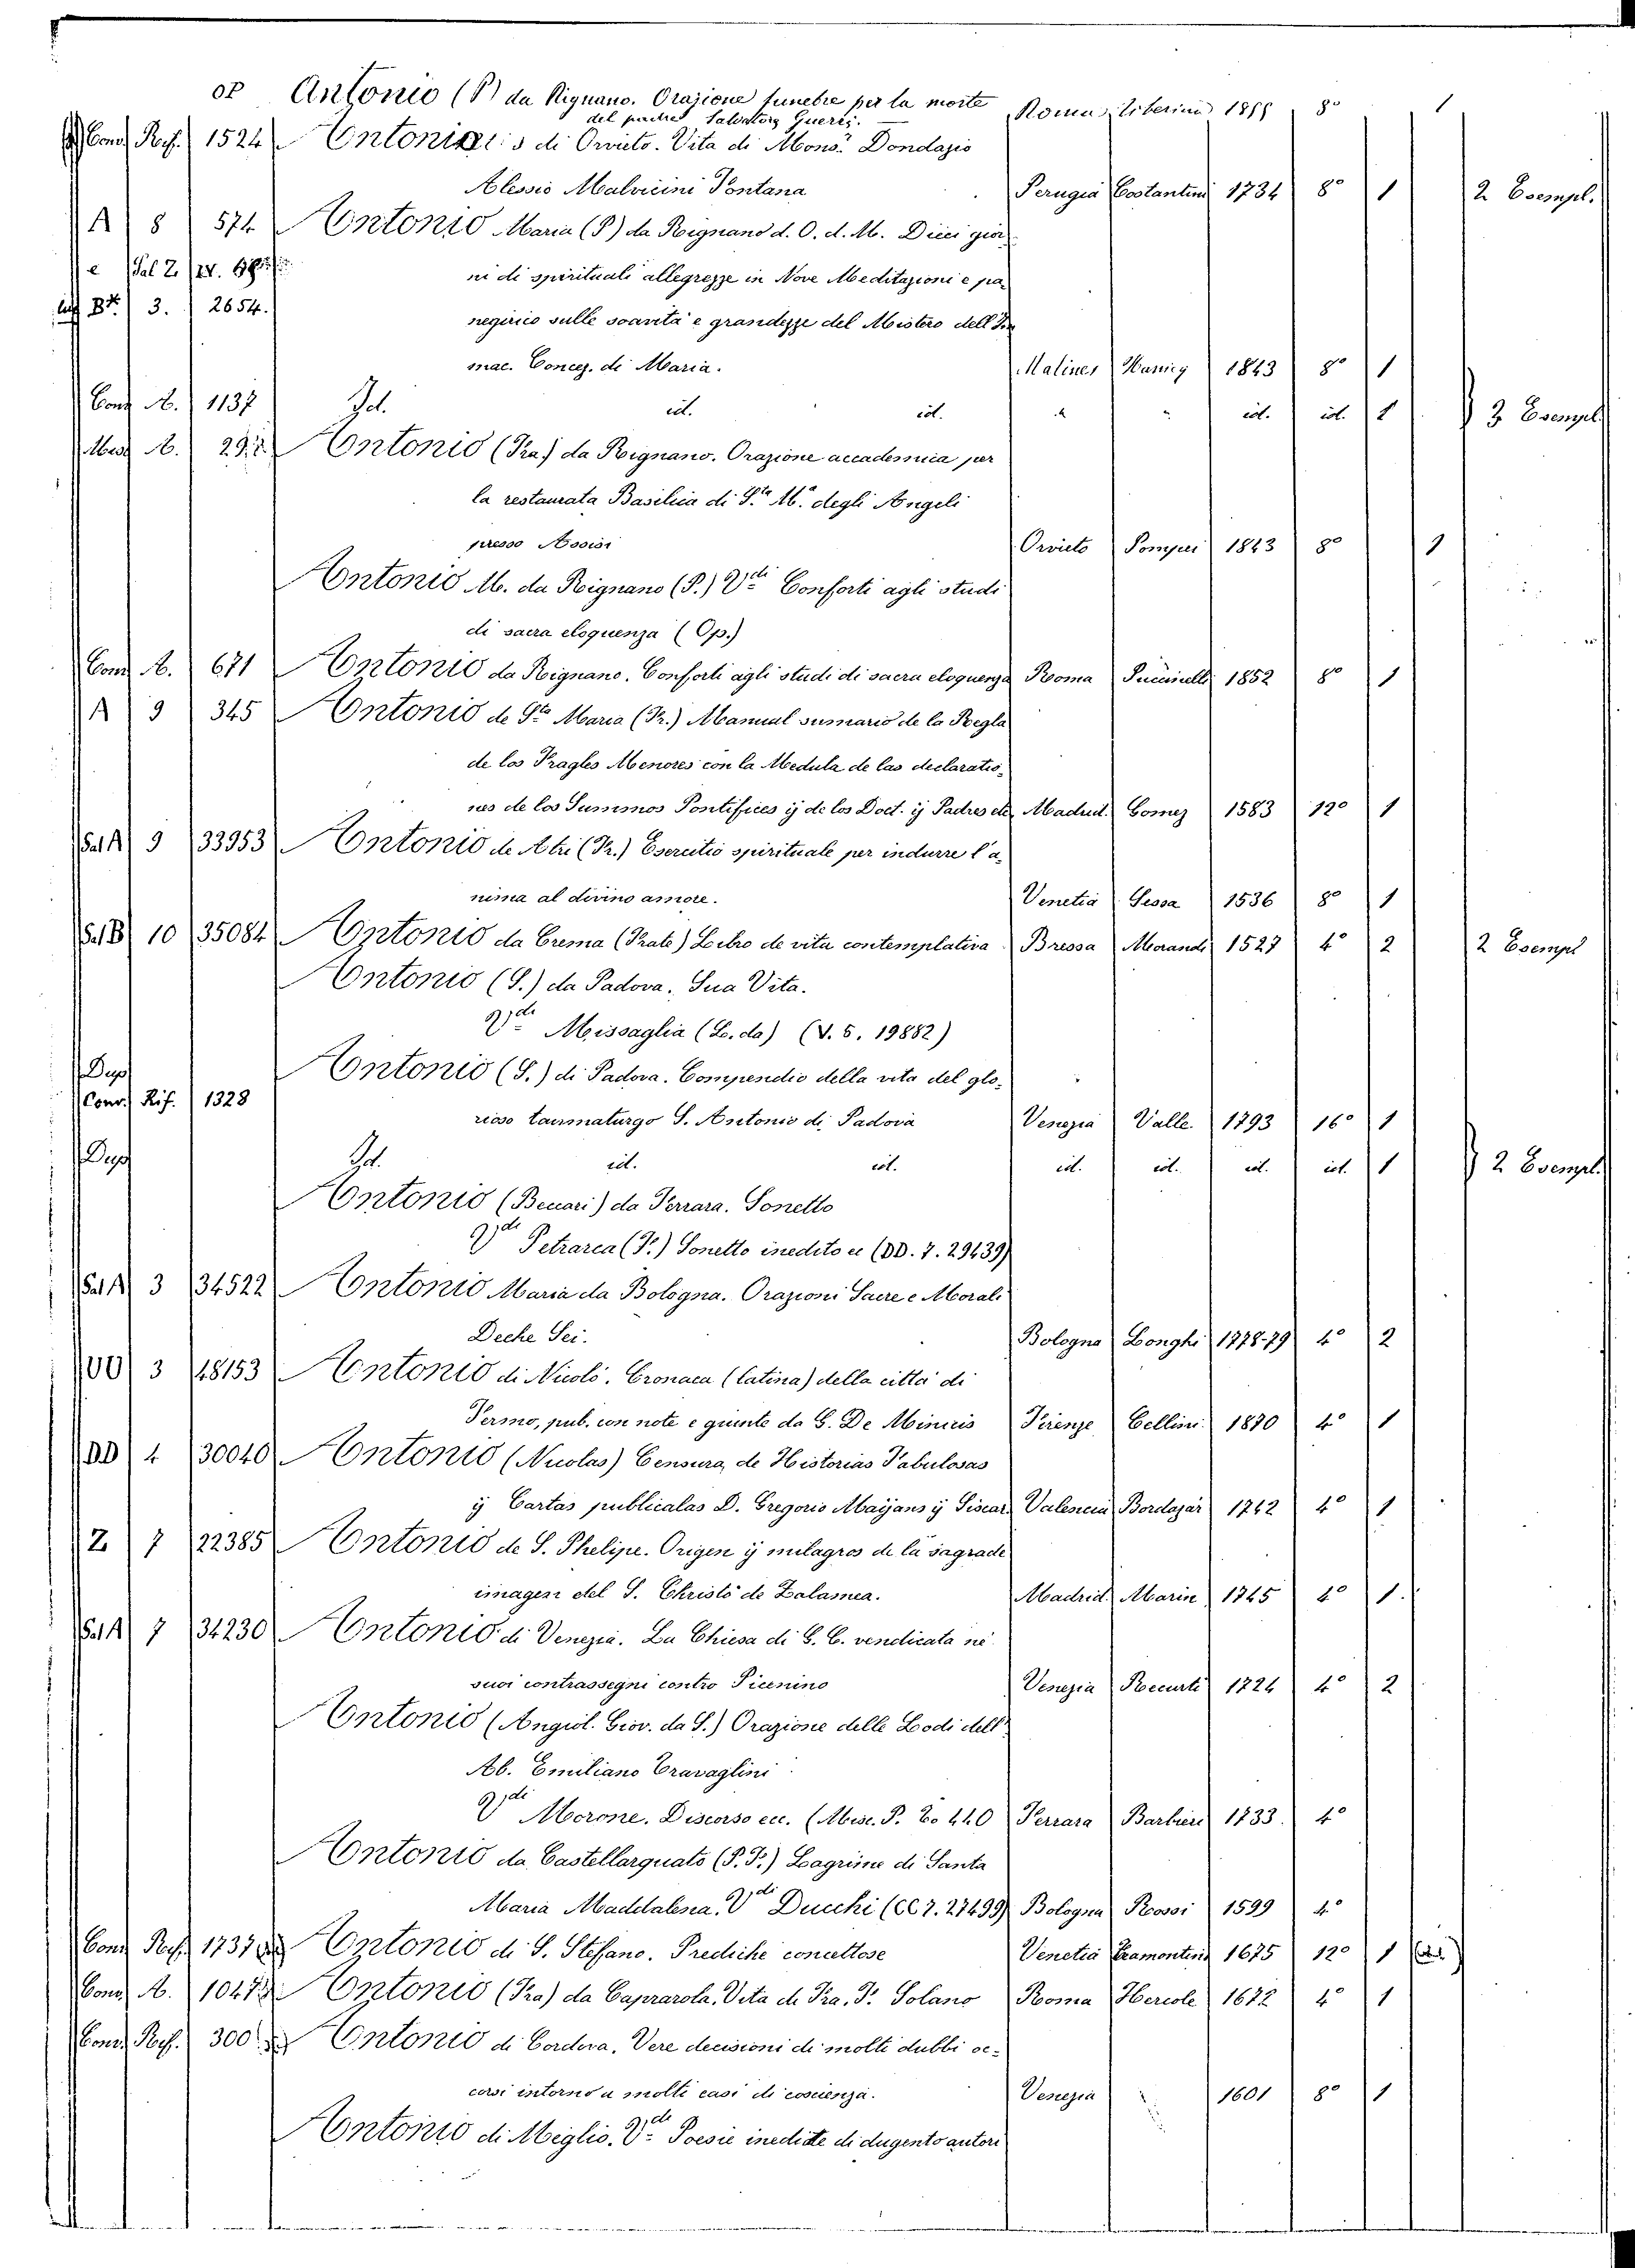 op Antonio (P) da Rignano. Orazione funebre per la morte Roma Tiberina 18 8° 1
del padre Salvatore
Cons Ref. 1524 di Orvieto. Vita di Mons.r Dondazio
Alessio Malvicini Fontana Perugia Costantini 1734 8° 1 2 Esempl.
A 8 574 Antonio Maria (P) da Rignano d. O. d. M. Dieci gior
e Sal Z. ni di spirituali allegrezze in Nove Meditazioni e pa
3. 2654. negirico sulle soavità e grandezze del Mistero dell'Im
mac. Concez. di Maria. Malines Hanicq 1843 8° 1
Conv A. 1137 Id. id. id. " " id. id. 1 3 Esempl
A. 29 Antonio (Fra) da Rignano. Orazione accademica per
la restaurata Basilica di S.ta M.a degli Angeli
presso Assisi Orvieto Pompei 1843 8° 1
Antonio M. da Rignano (P.) V.di Conforti agli studi
di sacra eloquenza (Op.)
Conv A. 671 Antonio da Rignano. Conforti agli studi di sacra eloquenza Roma Puccinelli 1852 8° 1
A 9 345 Antonio de S.ta Maria (Fr.) Manual sumario de la Regla
de los Frayles Menores con la Medula de las declaratio-
nes de los Summos Pontifices ÿ de los Doct. ÿ Padres etc Madrid. Gomez 1583 12° 1
Sal A 9 33953 Antonio de Atri (Fr.) Esercitio spirituale per indurre l'a-
nima al divino amore. Venetia Sessa 1536 8° 1
Sal B 10 35084 Antonio da Crema (Frate) Libro de vita contemplativa Bressa Morandi 1527 4° 2 2 Esempl
Antonio (S.) da Padova. Sua Vita.
V.di Missaglia (L. da) (V. 5. 19882)
Dup Antonio (S.) di Padova. Compendio della vita del glo-
Conv. Rif. 1328 rioso taumaturgo S. Antonio di Padova Venezia Valle. 1793 16° 1
Dup Id. id. id. id. id. id. id. 1 2 Esempl.
Antonio (Beccari) da Ferrara. Sonetto
V.di Petrarca (F.) Sonetto inedito ec (DD. 7. 29439)
Sal A 3 34522 Antonio Maria da Bologna. Orazioni Sacre e Morali
Deche Sei. Bologna Longhi 1778-79 4° 2
OO 3 48153 Antonio di Nicolò. Cronaca (latina) della città di
Fermo, pub. con note e giunte da G. De Minicis Firenze Cellini 1870 4° 1
DD 4 30040 Antonio (Nicolas) Censura de Historias Fabulosas
ÿ Cartas publicalas D. Gregorio Mayans ÿ Siscar. Valencia Bordazar 1742 4° 1
Z 7 22385 Antonio de S. Phelipe. Origen ÿ milagros de la sagrade
imagen del S. Christo de Zalamea. Madrid. Marin 1745 4° 1.
Sal A 7 34230 Antonio di Venezia. La Chiesa di G. C. vendicata ne
suoi contrassegni contro Picenino Venezia Recurti 1724 4° 2
Antonio (Angiol. Giov. da S.) Orazione delle Lodi dell'
Ab. Emiliano Travaglini
V.di Morone. Discorso ecc. (Misc. P. To 440 Ferrara Barbieri 1733. 4°
Antonio da Castellarquato (P. F.) Lagrime di Santa
Maria Maddalena. V.di Ducchi (CC 7. 27499) Bologna Rossi 1599 4°
Conv Ref. 1737 Antonio di S. Stefano. Prediche concettose Venetia Tramontini 1675 12° 1
Conv A. 1047 Antonio (Fra) da Caprarola. Vita di Fra. F. Solano Roma Hercole 1672 4° 1
Conv Ref. 300 Antonio di Cordova. Vere decisioni di molti dubbi oc-
corsi intorno a molti casi di coscienza. Venezia 1601 8° 1
Antonio di Meglio. V.di Poesie inedite di dugento autori